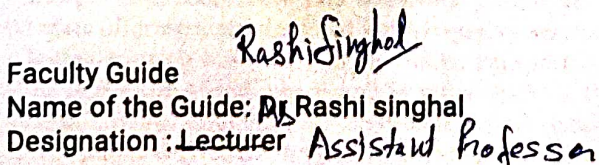 Rashi Singhal
Faculty Guide
Name of the Guide: Ms Rashi singhal
Designation : Lecturer Assistant Professor